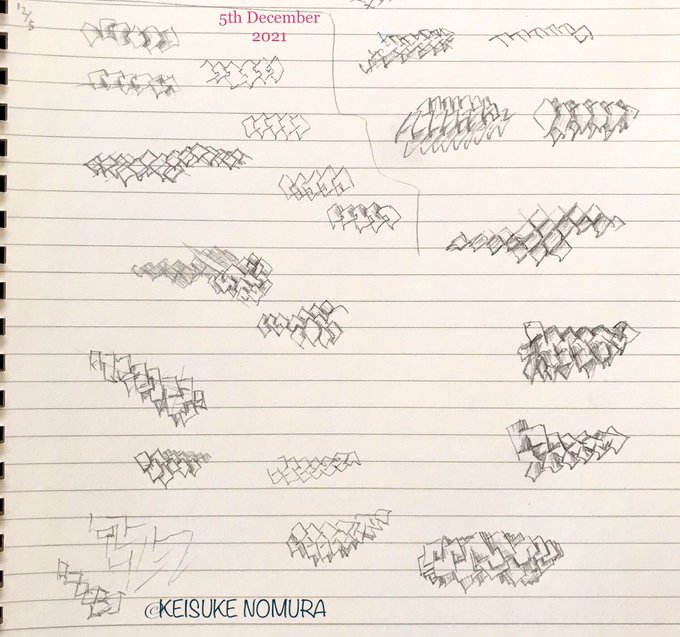 12/5
5th December
2021
@KEISUKE NOMURA